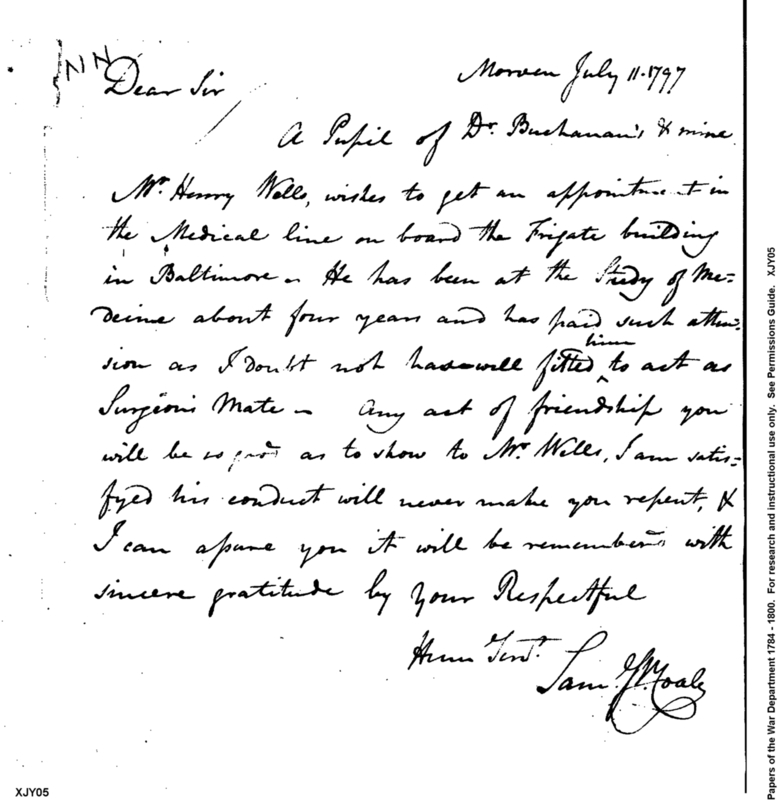 NN
Morven July 11. 1797
Dear Sir
A Pupil of Dr. Buchanan's & mine
Mr. Henry Wells, wishes to get an appointment in
the Medical line on board the Frigate building
in Baltimore - He has been at the Study of Me=
decine about four years and has paid such atten=
sion as I doubt not has well fitted him to act as
Surgeons Mate - Any act of friendship you
will be so good as to show to Mr. Wells, I am satis=
fyed his conduct will never make you repent, &
I can assure you it will be remembered with
sincere gratitude by your Respectful
Hum Servt.
Sam.
XJY05
Papers of the War Department 1784 - 1800. For research and instructional use only. See Permissions Guide. XJY05